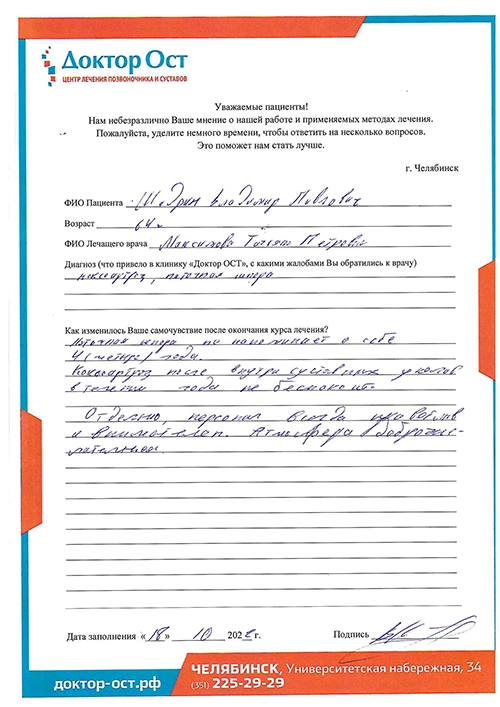 Доктор Ост
ЦЕНТР ЛЕЧЕНИЯ ПОЗВОНОЧНИКА И СУСТАВОВ
Уважаемые пациенты!
Нам небезразлично Ваше мнение о нашей работе и применяемых методах лечения.
Пожалуйста, уделите немного времени, чтобы ответить на несколько вопросов.
Это поможет нам стать лучше.
г. Челябинск
ФИО Пациента Владимир Павлович
Возраст 64
ФИО Лечащего врача Максимова Татьяна Петровна
Диагноз (что привело в клинику «Доктор ОСТ», с какими жалобами Вы обратились к врачу)
коксартроз, пяточная шпора
Как изменилось Ваше самочувствие после окончания курса лечения?
Пяточная шпора не напоминает о себе
4 (четыре) года.
Коксартроз после внутри суставных уколов
в течении года не беспокоит.
Отдельно, персонал всегда приветлив
и внимателен. Атмосфера доброже-
лательная.
Дата заполнения «18» 10 202 г.
Подпись
доктор-ост.рф
ЧЕЛЯБИНСК, Университетская набережная, 34
(351) 225-29-29